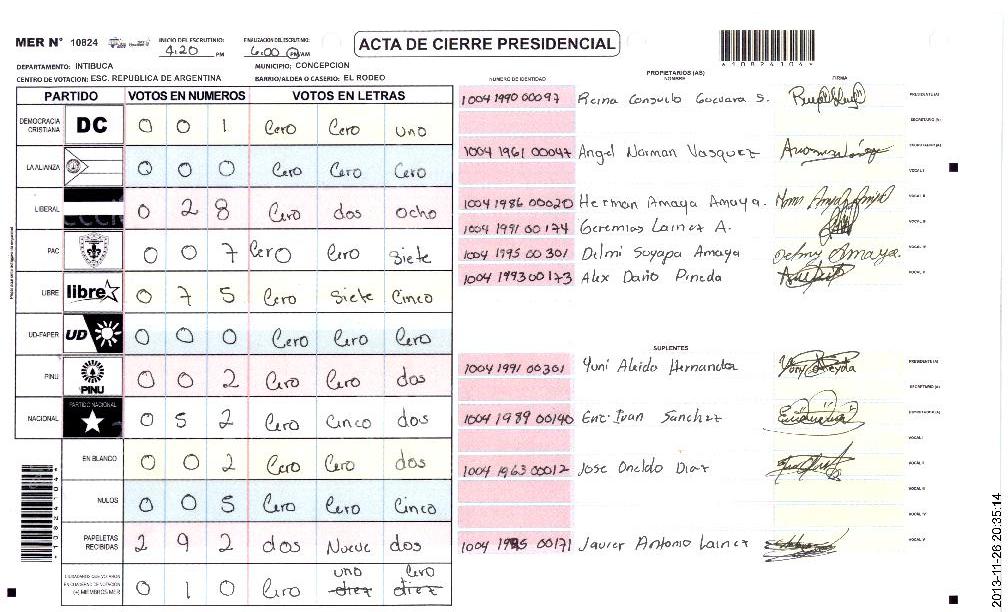 MER N° 10824 INICIO DEL ESCRUTINIO: 4:20 PM FINALIZACION DEL ESCRUTINIO: 6:00 PM/AM
ACTA DE CIERRE PRESIDENCIAL
DEPARTAMENTO: INTIBUCA MUNICIPIO: CONCEPCION
CENTRO DE VOTACION: ESC. REPUBLICA DE ARGENTINA BARRIO/ALDEA O CASERIO: EL RODEO
PARTIDO VOTOS EN NUMEROS VOTOS EN LETRAS
DEMOCRACIA CRISTIANA DC 0 0 1 Cero Cero uno
LA ALIANZA 0 0 0 Cero Cero Cero
LIBERAL 0 2 8 Cero dos ocho
PAC 0 0 7 Cero Cero siete
LIBRE libre 0 7 5 Cero siete Cinco
UD-FAPER UD 0 0 0 Cero Cero Cero
PINU PINU 0 0 2 Cero Cero dos
NACIONAL PARTIDO NACIONAL 0 5 2 Cero Cinco dos
EN BLANCO 0 0 2 Cero Cero dos
NULOS 0 0 5 Cero Cero Cinco
PAPELETAS RECIBIDAS 2 9 2 dos Nueve dos
CIUDADANOS QUE VOTARON EN CUADERNO DE VOTACION (+) MIEMBROS MER 0 1 0 Cero diez diez uno Cero
NUMERO DE IDENTIDAD PROPIETARIOS (AS) NOMBRE FIRMA
1004 1990 00097 Reina Consuelo Guevara S. PRESIDENTE (A)
SECRETARIO (A)
1004 1961 00047 Angel Norman Vasquez
VOCAL I
1004 1986 00020 Herman Amaya Amaya. VOCAL II
1004 1991 00174 Geremias Lainez A. VOCAL III
1004 1995 00301 Delmi Suyapa Amaya Delmy Amaya. VOCAL IV
1004 1993 00173 Alex Dario Pineda VOCAL V
SUPLENTES
1004 1991 00301 Yuni Aleida Hernandez PRESIDENTE (A)
SECRETARIO (A)
1004 1989 00140 Eric Ivan Sanchez
VOCAL I
1004 1963 00012 Jose Oneldo Diaz VOCAL II
VOCAL III
VOCAL IV
1004 1985 00171 Javier Antonio Lainez VOCAL V
2013-11-26 20:35:14